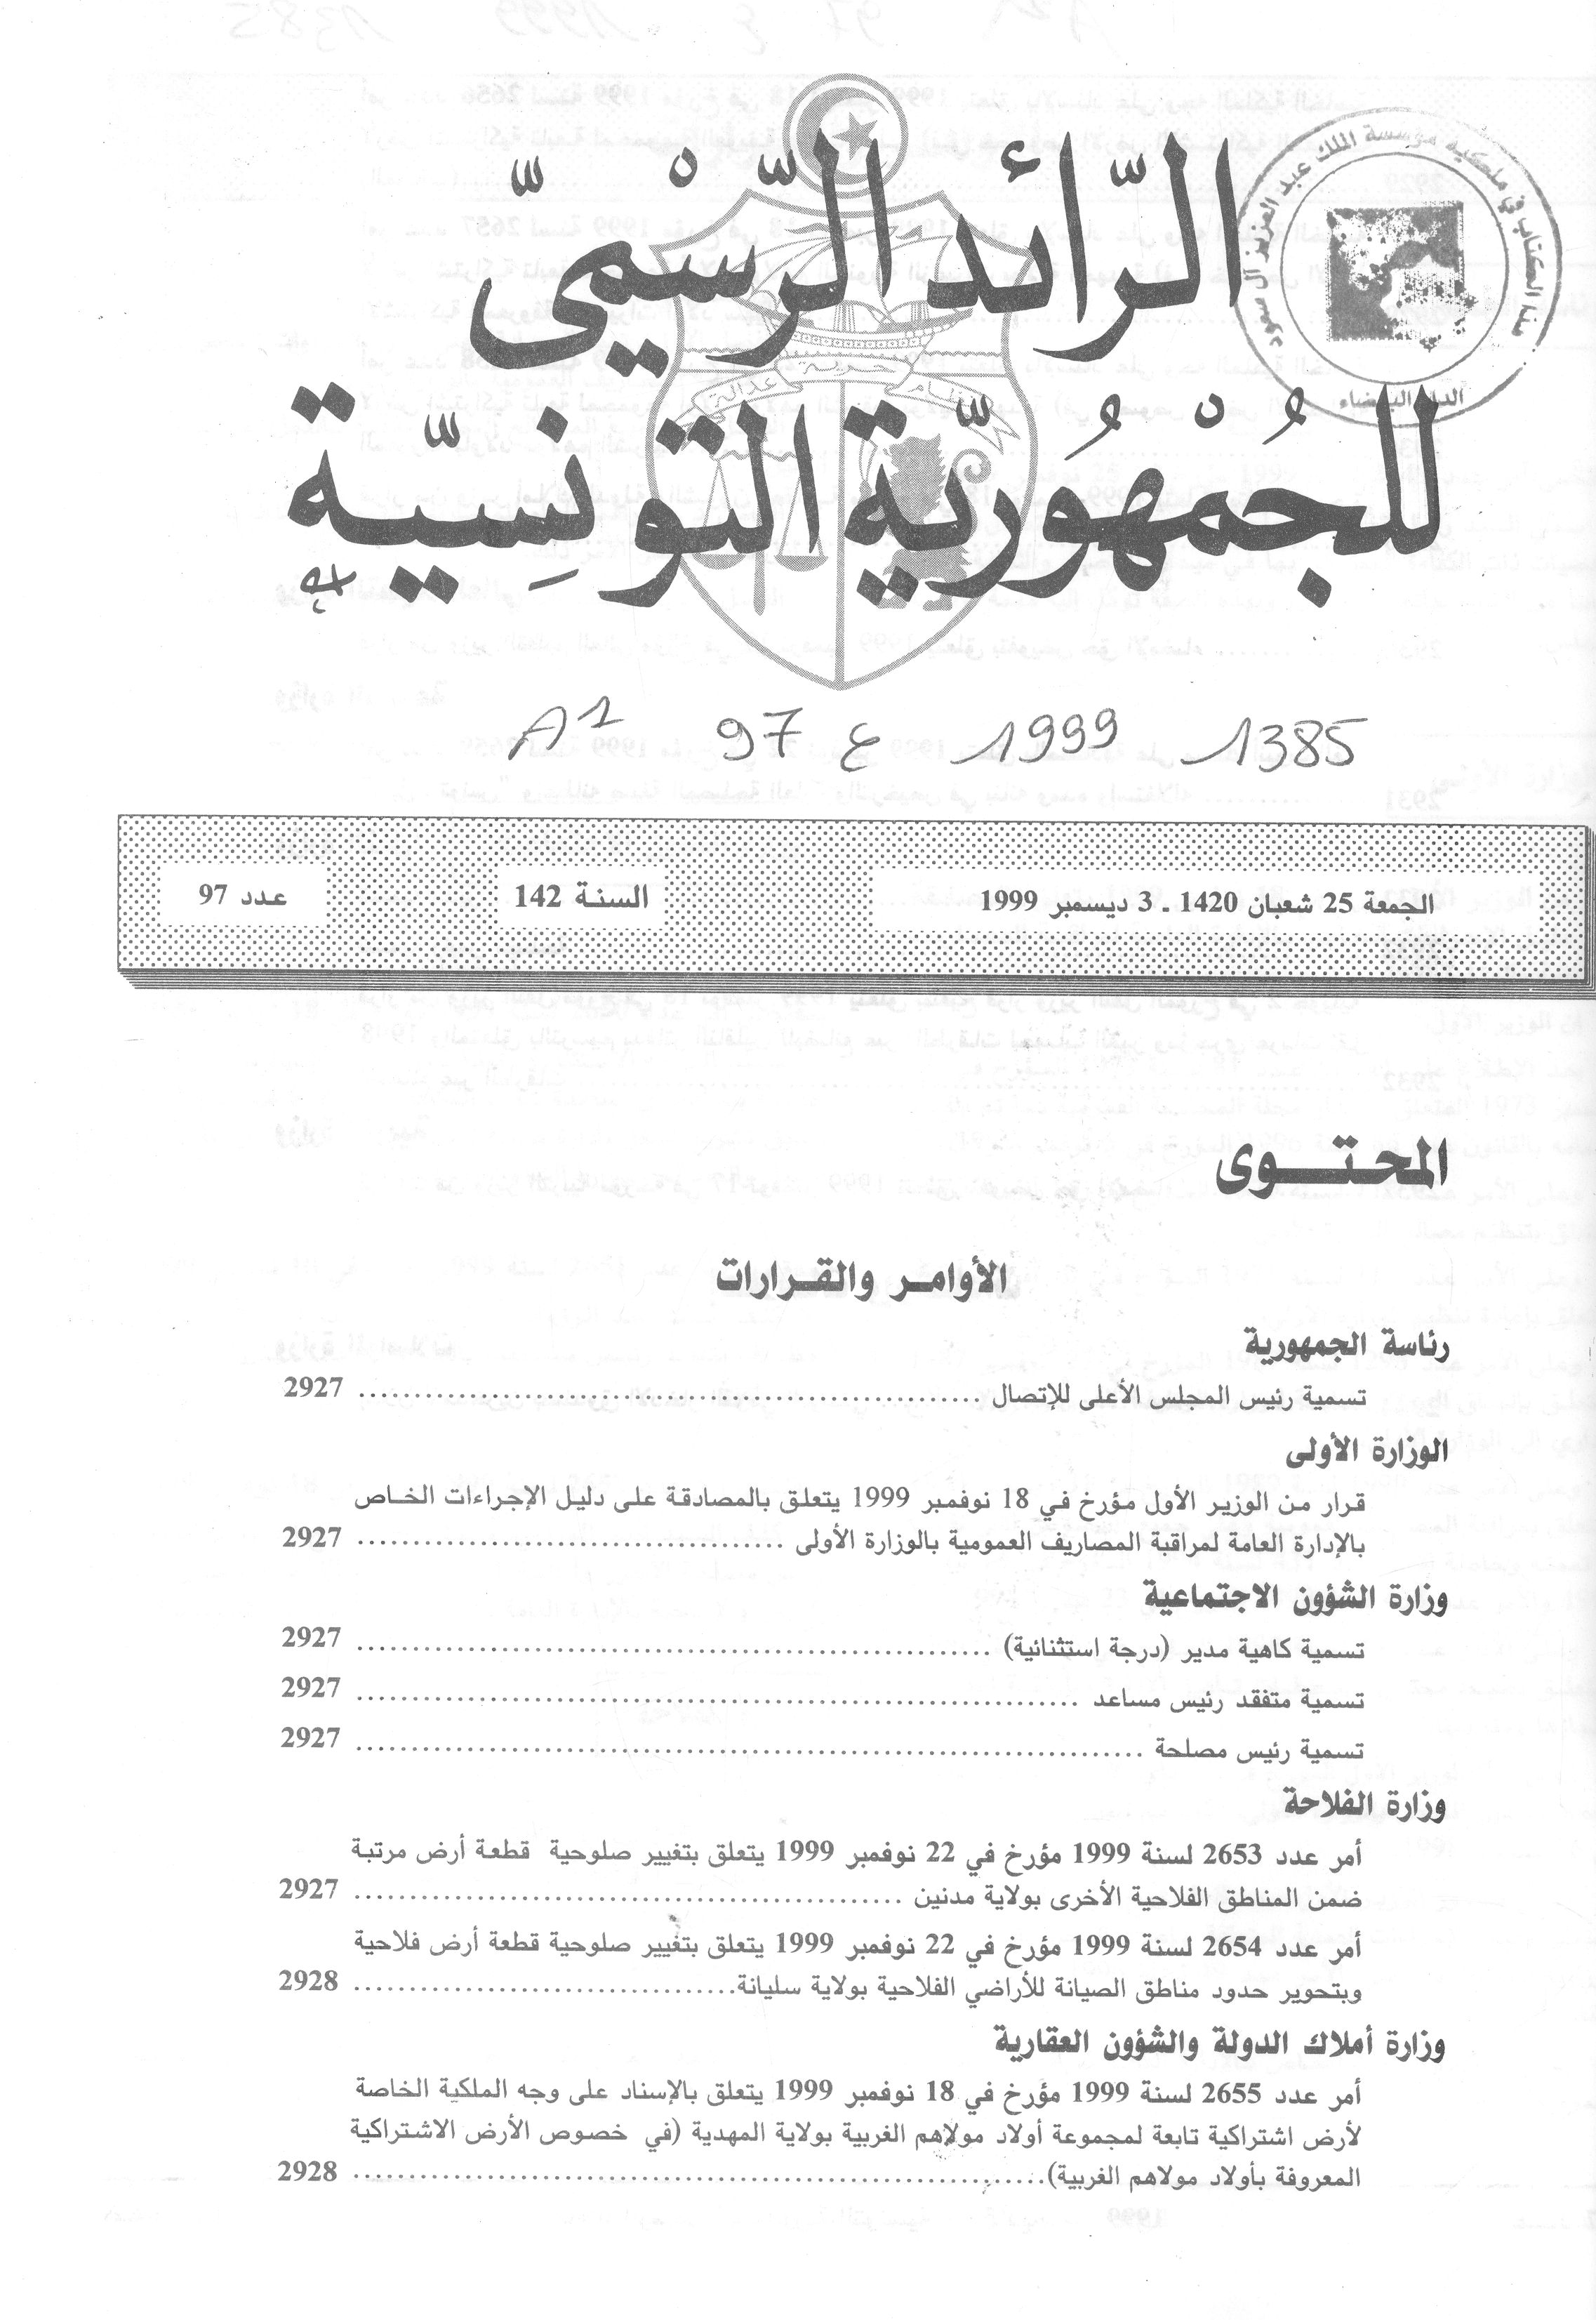 الرّائد الرّسْميّ
للجُمْهُوريّة التّونِسيّة
نظام حرية عدالة
هذا الكتاب في ملكية مؤسسة الملك عبد العزيز آل سعود
الدار البيضاء
A1 97 ع 1999 1385
الجمعة 25 شعبان 1420 ـ 3 ديسمبر 1999
السنة 142
عدد 97
المحتوى
الأوامر والقرارات
رئاسة الجمهورية
تسمية رئيس المجلس الأعلى للإتصال ........ 2927
الوزارة الأولى
قرار من الوزير الأول مؤرخ في 18 نوفمبر 1999 يتعلق بالمصادقة على دليل الإجراءات الخاص
بالإدارة العامة لمراقبة المصاريف العمومية بالوزارة الأولى ........ 2927
وزارة الشؤون الاجتماعية
تسمية كاهية مدير (درجة استثنائية) ........ 2927
تسمية متفقد رئيس مساعد ........ 2927
تسمية رئيس مصلحة ........ 2927
وزارة الفلاحة
أمر عدد 2653 لسنة 1999 مؤرخ في 22 نوفمبر 1999 يتعلق بتغيير صلوحية قطعة أرض مرتبة
ضمن المناطق الفلاحية الأخرى بولاية مدنين ........ 2927
أمر عدد 2654 لسنة 1999 مؤرخ في 22 نوفمبر 1999 يتعلق بتغيير صلوحية قطعة أرض فلاحية
وبتحوير حدود مناطق الصيانة للأراضي الفلاحية بولاية سليانة ........ 2928
وزارة أملاك الدولة والشؤون العقارية
أمر عدد 2655 لسنة 1999 مؤرخ في 18 نوفمبر 1999 يتعلق بالإسناد على وجه الملكية الخاصة
لأرض اشتراكية تابعة لمجموعة أولاد مولاهم الغربية بولاية المهدية (في خصوص الأرض الاشتراكية
المعروفة بأولاد مولاهم الغربية) ........ 2928